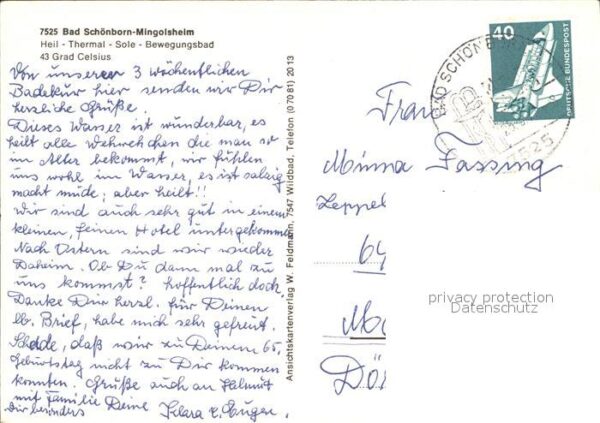 7525 Bad Schönborn-Mingolsheim
Heil - Thermal - Sole - Bewegungsbad
43 Grad Celsius
Von unserer 3 wöchentlichen
Badekur hier senden wir Dir
herzliche Grüße.
Dieses Wasser ist wunderbar, es
heilt alle Wehwehchen die man so
im Alter bekommt, wir fühlen
uns wohl im Wasser, es ist salzig
macht müde, aber heilt!!
Wir sind auch sehr gut in einem
kleinen, feinen Hotel untergekommen
Nach Ostern sind wir wieder
Daheim. Ob Du dann mal zu
uns kommst? hoffentlich doch.
Danke Dir herzl. für Deinen
lb. Brief, habe mich sehr gefreut.
Schade, daß wir zu Deinem 65.
Geburtstag nicht zu Dir kommen
konnten. Grüße auch an Helmut
mit Familie Deine
Dir besonders Klara u. Eugen.
Ansichtskartenverlag W. Feldmann, 7547 Wildbad, Telefon (0 70 81) 20 13
40
DEUTSCHE BUNDESPOST
BAD SCHÖNB
7525
Frau
Minna Fassing
Zeppel
64
Ma
Dö
privacy protection
Datenschutz